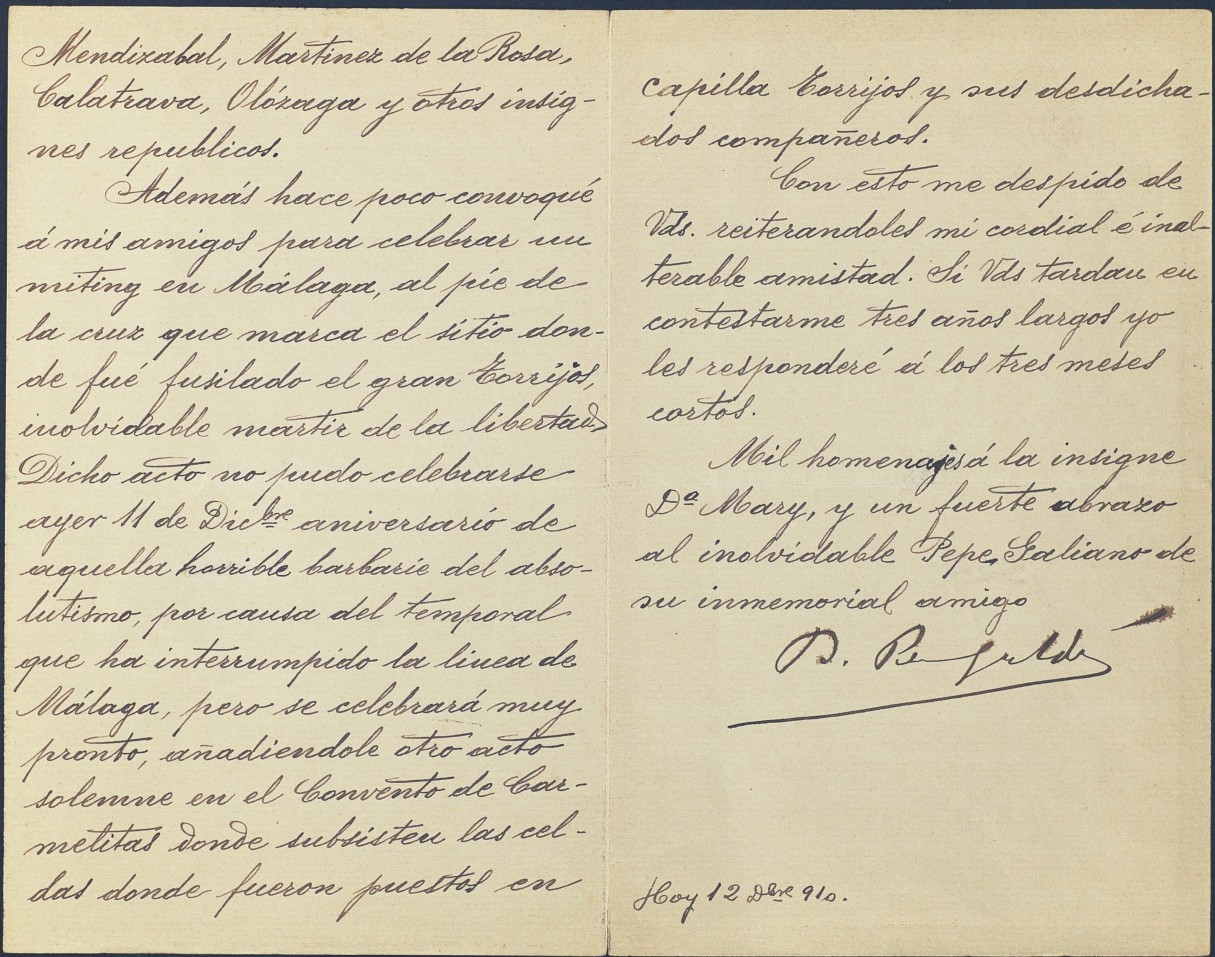 Mendizabal, Martinez de la Rosa,
Calatrava, Olózaga y otros insig-
nes republicos.
Además hace poco convoqué
á mis amigos para celebrar un
miting en Málaga, al píe de
la cruz que marca el sitio don-
de fué fusilado el gran Torrijos,
inolvidable martir de la libertad.
Dicho acto no pudo celebrarse
ayer 11 de Dicbre aniversario de
aquella horrible barbarie del abso-
lutismo, por causa del temporal
que ha interrumpido la linea de
Málaga, pero se celebrará muy
pronto, añadiendole otro acto
solemne en el Convento de Car-
melitas donde subsisten las cel-
das donde fueron puestos en
capilla Torrijos y sus desdicha-
dos compañeros.
Con esto me despido de
Vds. reiterandoles mi cordial é inal-
terable amistad. Si Vds tardan en
contestarme tres años largos yo
les responderé á los tres meses
cortos.
Mil homenajes á la insigne
Da Mary, y un fuerte abrazo
al inolvidable Pepe Galiano de
su inmemorial amigo
B. Perez Galdós
Hoy 12 Dbre 910.